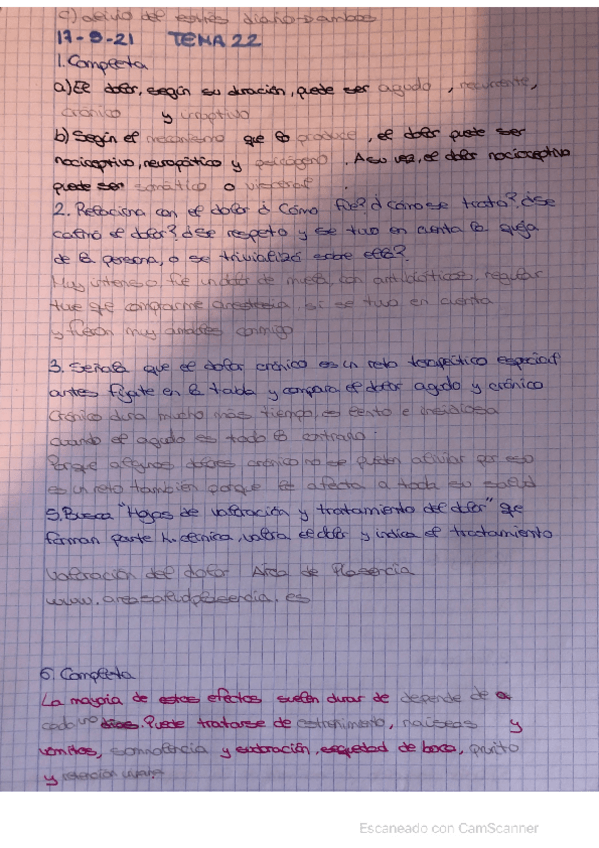 c) alivio del estrés diario → ambos
17-9-21 TEMA 22
1. Completa
a) El dolor, según su duración, puede ser agudo, recurrente,
crónico y irruptivo
b) Según el mecanismo que lo produce, el dolor puede ser
nocioceptivo, neuropático y psicógeno. A su vez, el dolor nocioceptivo
puede ser somático o visceral.
2. Relaciona con el dolor ¿Cómo fue? ¿cómo se trato? ¿Se
calmó el dolor? ¿Se respeto y se tuvo en cuenta la queja
de la persona, o se trivializó sobre ella?
Muy intenso fue un dolor de muela, con antibióticos, regular
tuve que comprarme anestesia, si se tuvo en cuenta
y fueron muy amables conmigo
3. Señala que el dolor crónico es un reto terapeítico especial
antes fíjate en la tabla y compara el dolor agudo y crónico
Crónico dura mucho más tiempo, es lento e insidiosa
cuando el agudo es todo lo contrario.
Porque algunos dolores crónico no se pueden aliviar por eso
es un reto también porque le afecta a toda su salud
5. Busca "Hojas de valoración y tratamiento del dolor" que
forman parte h. clínica, valora el dolor y indica el tratamiento
Valoración del dolor Area de Plasencia
www.areasaludplasencia.es
6. Completa
La mayoia de estos efectos suelen durar de depende de
cada uno días. Puede tratarse de estreñimiento, naúseas y
vómitos, somnolencia y sudoración, sequedad de boca, prurito
y retención urinaria
Escaneado con CamScanner